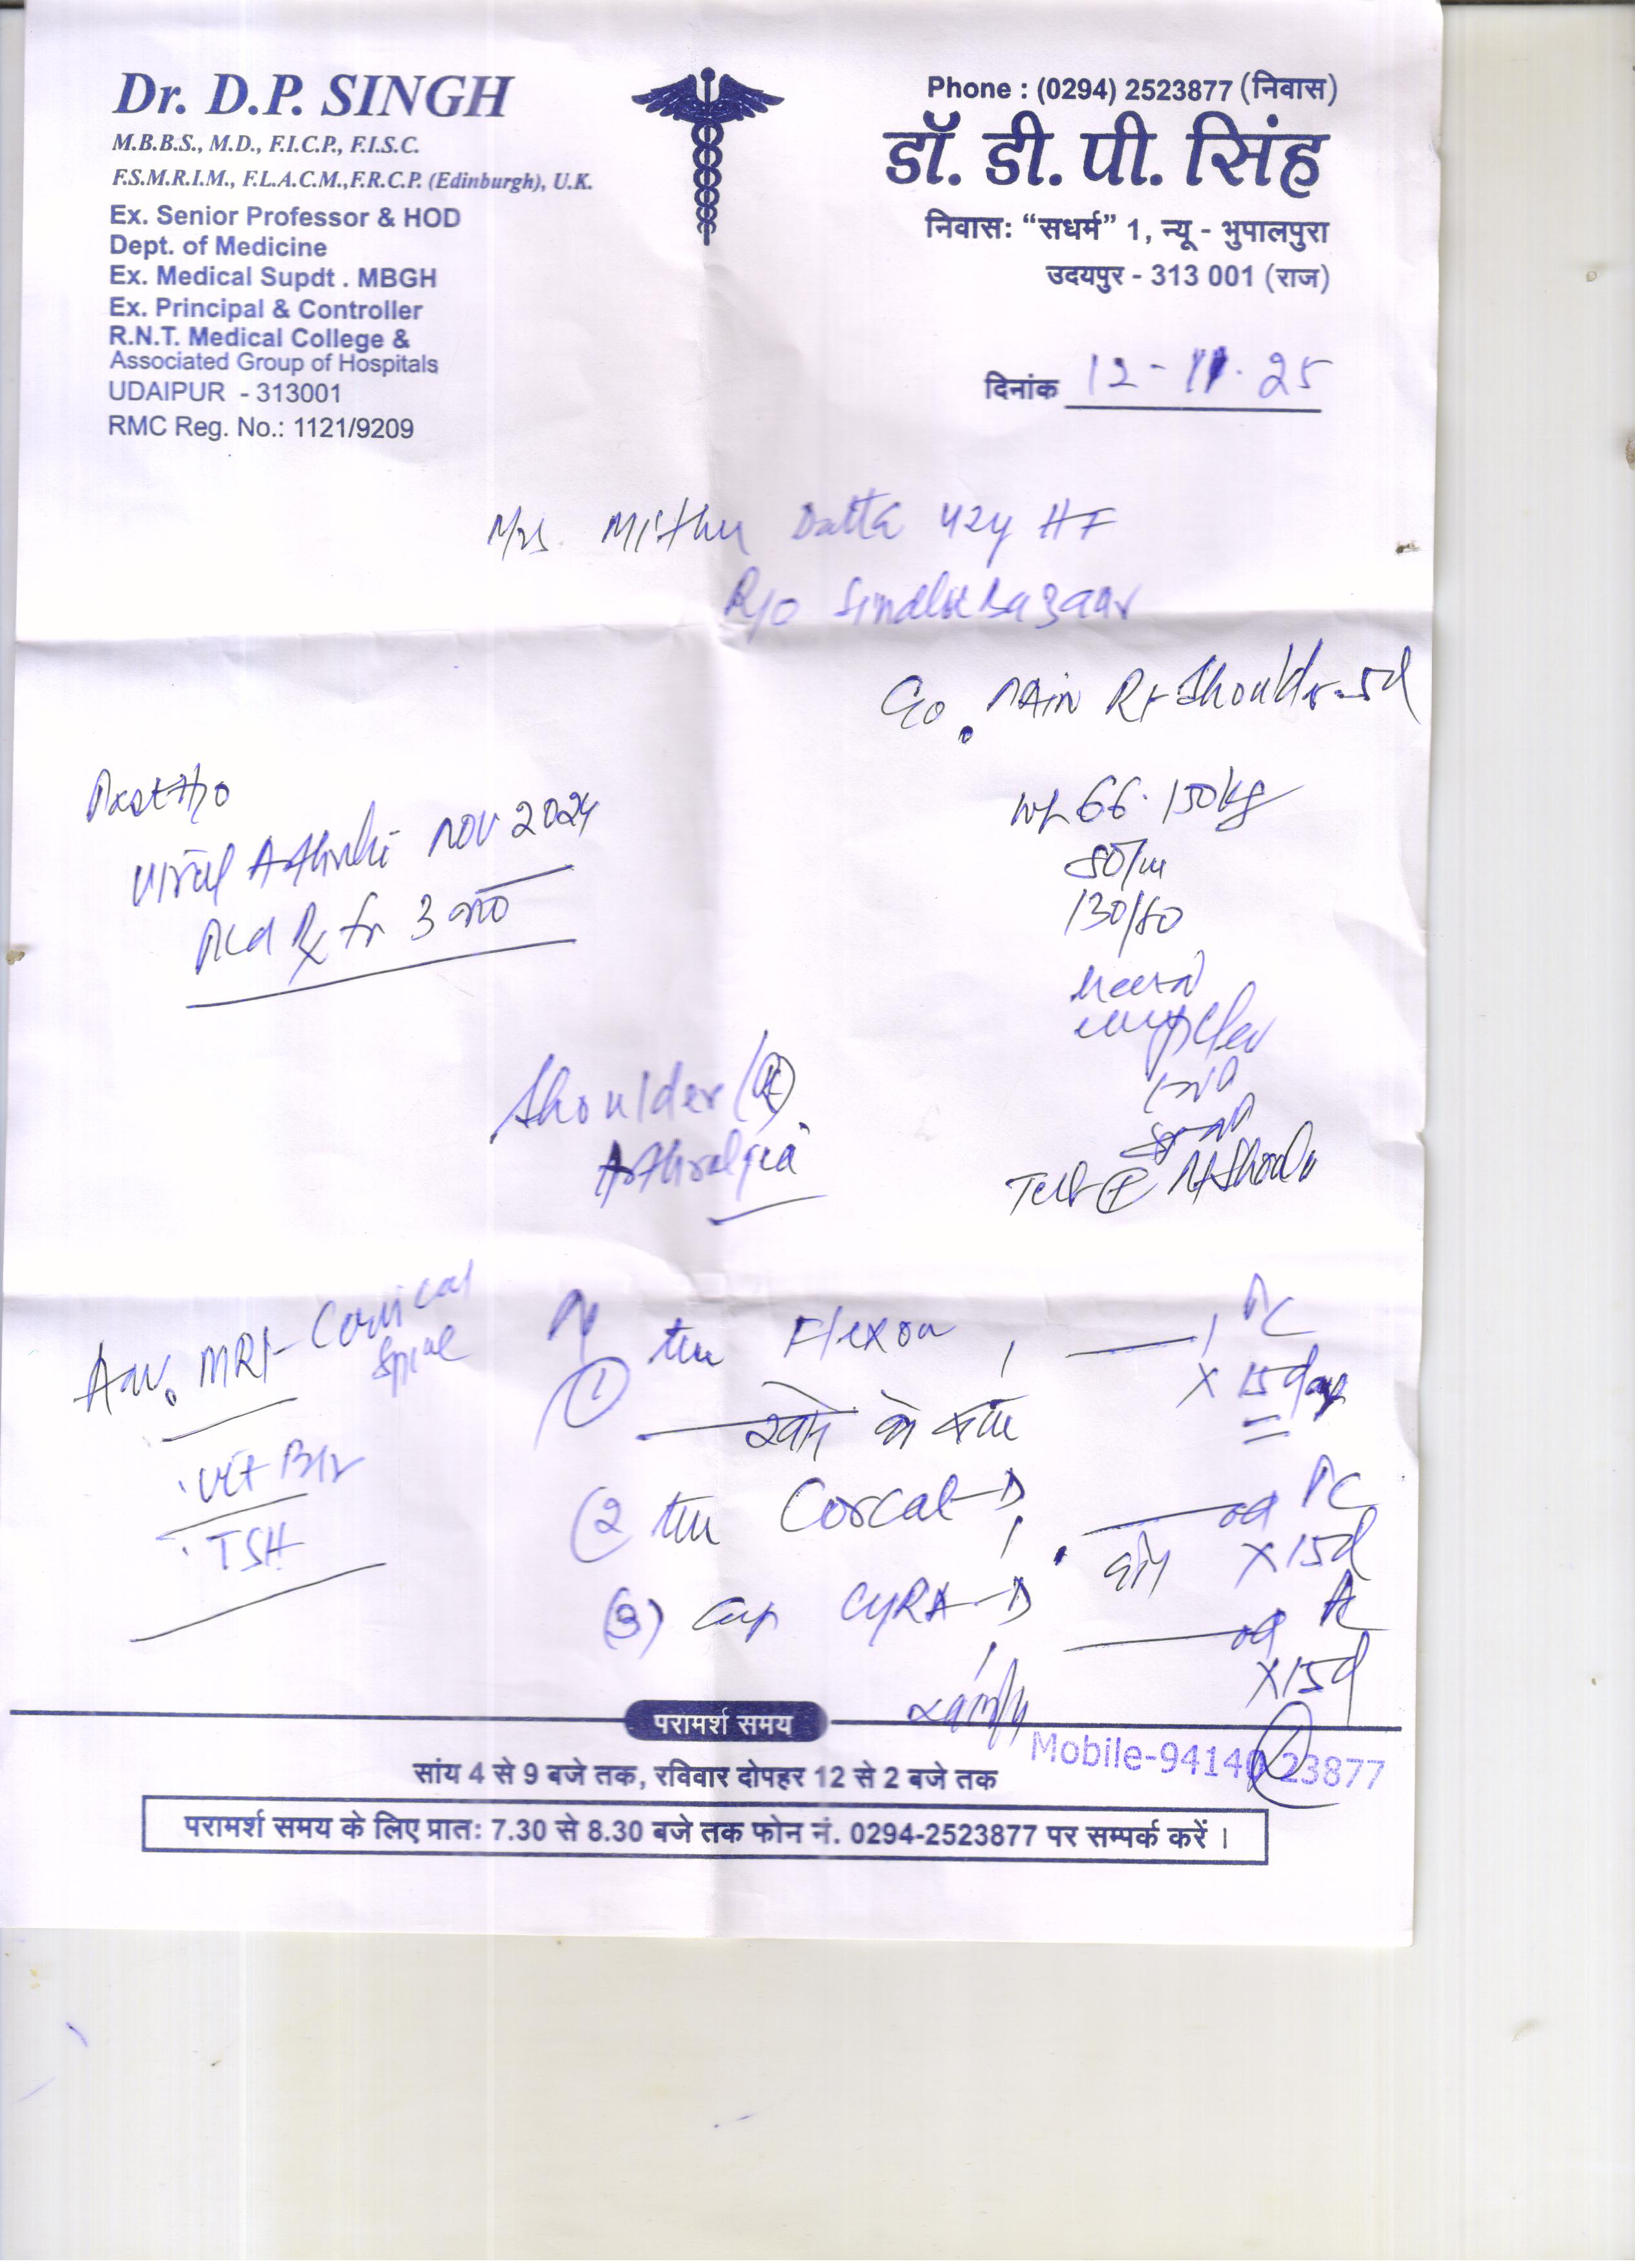 Dr. D.P. SINGH
M.B.B.S., M.D., F.I.C.P., F.I.S.C.
F.S.M.R.I.M., F.L.A.C.M.,F.R.C.P. (Edinburgh), U.K.
Ex. Senior Professor & HOD
Dept. of Medicine
Ex. Medical Supdt . MBGH
Ex. Principal & Controller
R.N.T. Medical College &
Associated Group of Hospitals
UDAIPUR - 313001
RMC Reg. No.: 1121/9209
Phone : (0294) 2523877 (निवास)
डॉ. डी. पी. सिंह
निवास: “सधर्म” 1, न्यू - भुपालपुरा
उदयपुर - 313 001 (राज)
दिनांक 12-11.25
Mrs. Mithu Datta 42y HF
R/O Bazaar
C/o. Pain Rt Shoulder 5d
Past H/o
Viral Nov 2024
Rx for 3 mo
Wt 66.150kg
80/m
130/80
Shoulder (R)
Arthralgia
Rt Shoulder
Adv. MRI- Cervical
Spine
Vit B12
TSH
(1) Flexon 1 PC
x 15 days
खाने के बाद
(2 Corcal-D od PC
x 15d
(3) Cap CYRA-D od AC
x 15d
परामर्श समय
सांय 4 से 9 बजे तक, रविवार दोपहर 12 से 2 बजे तक
Mobile-94140 23877
परामर्श समय के लिए प्रातः 7.30 से 8.30 बजे तक फोन नं. 0294-2523877 पर सम्पर्क करें ।